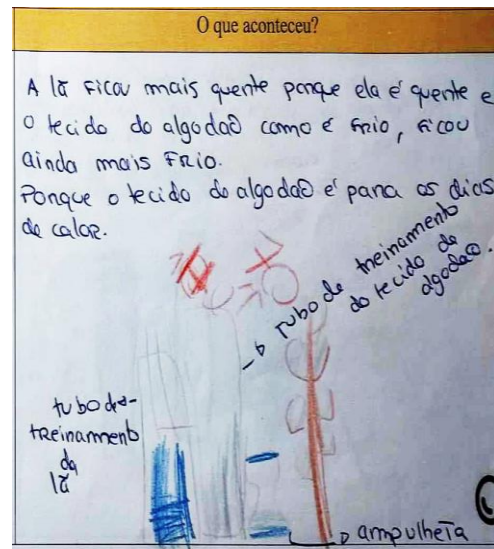 O que aconteceu?
A lã ficou mais quente porque ela é quente e
o tecido do algodaõ como é frio, ficou
ainda mais FRIO.
Porque o tecido do algodaõ é para os dias
de caloR.
tubo de treinamento
do tecido de
algodaõ.
tubo de-
tReinamento
da
lã
ampulheta